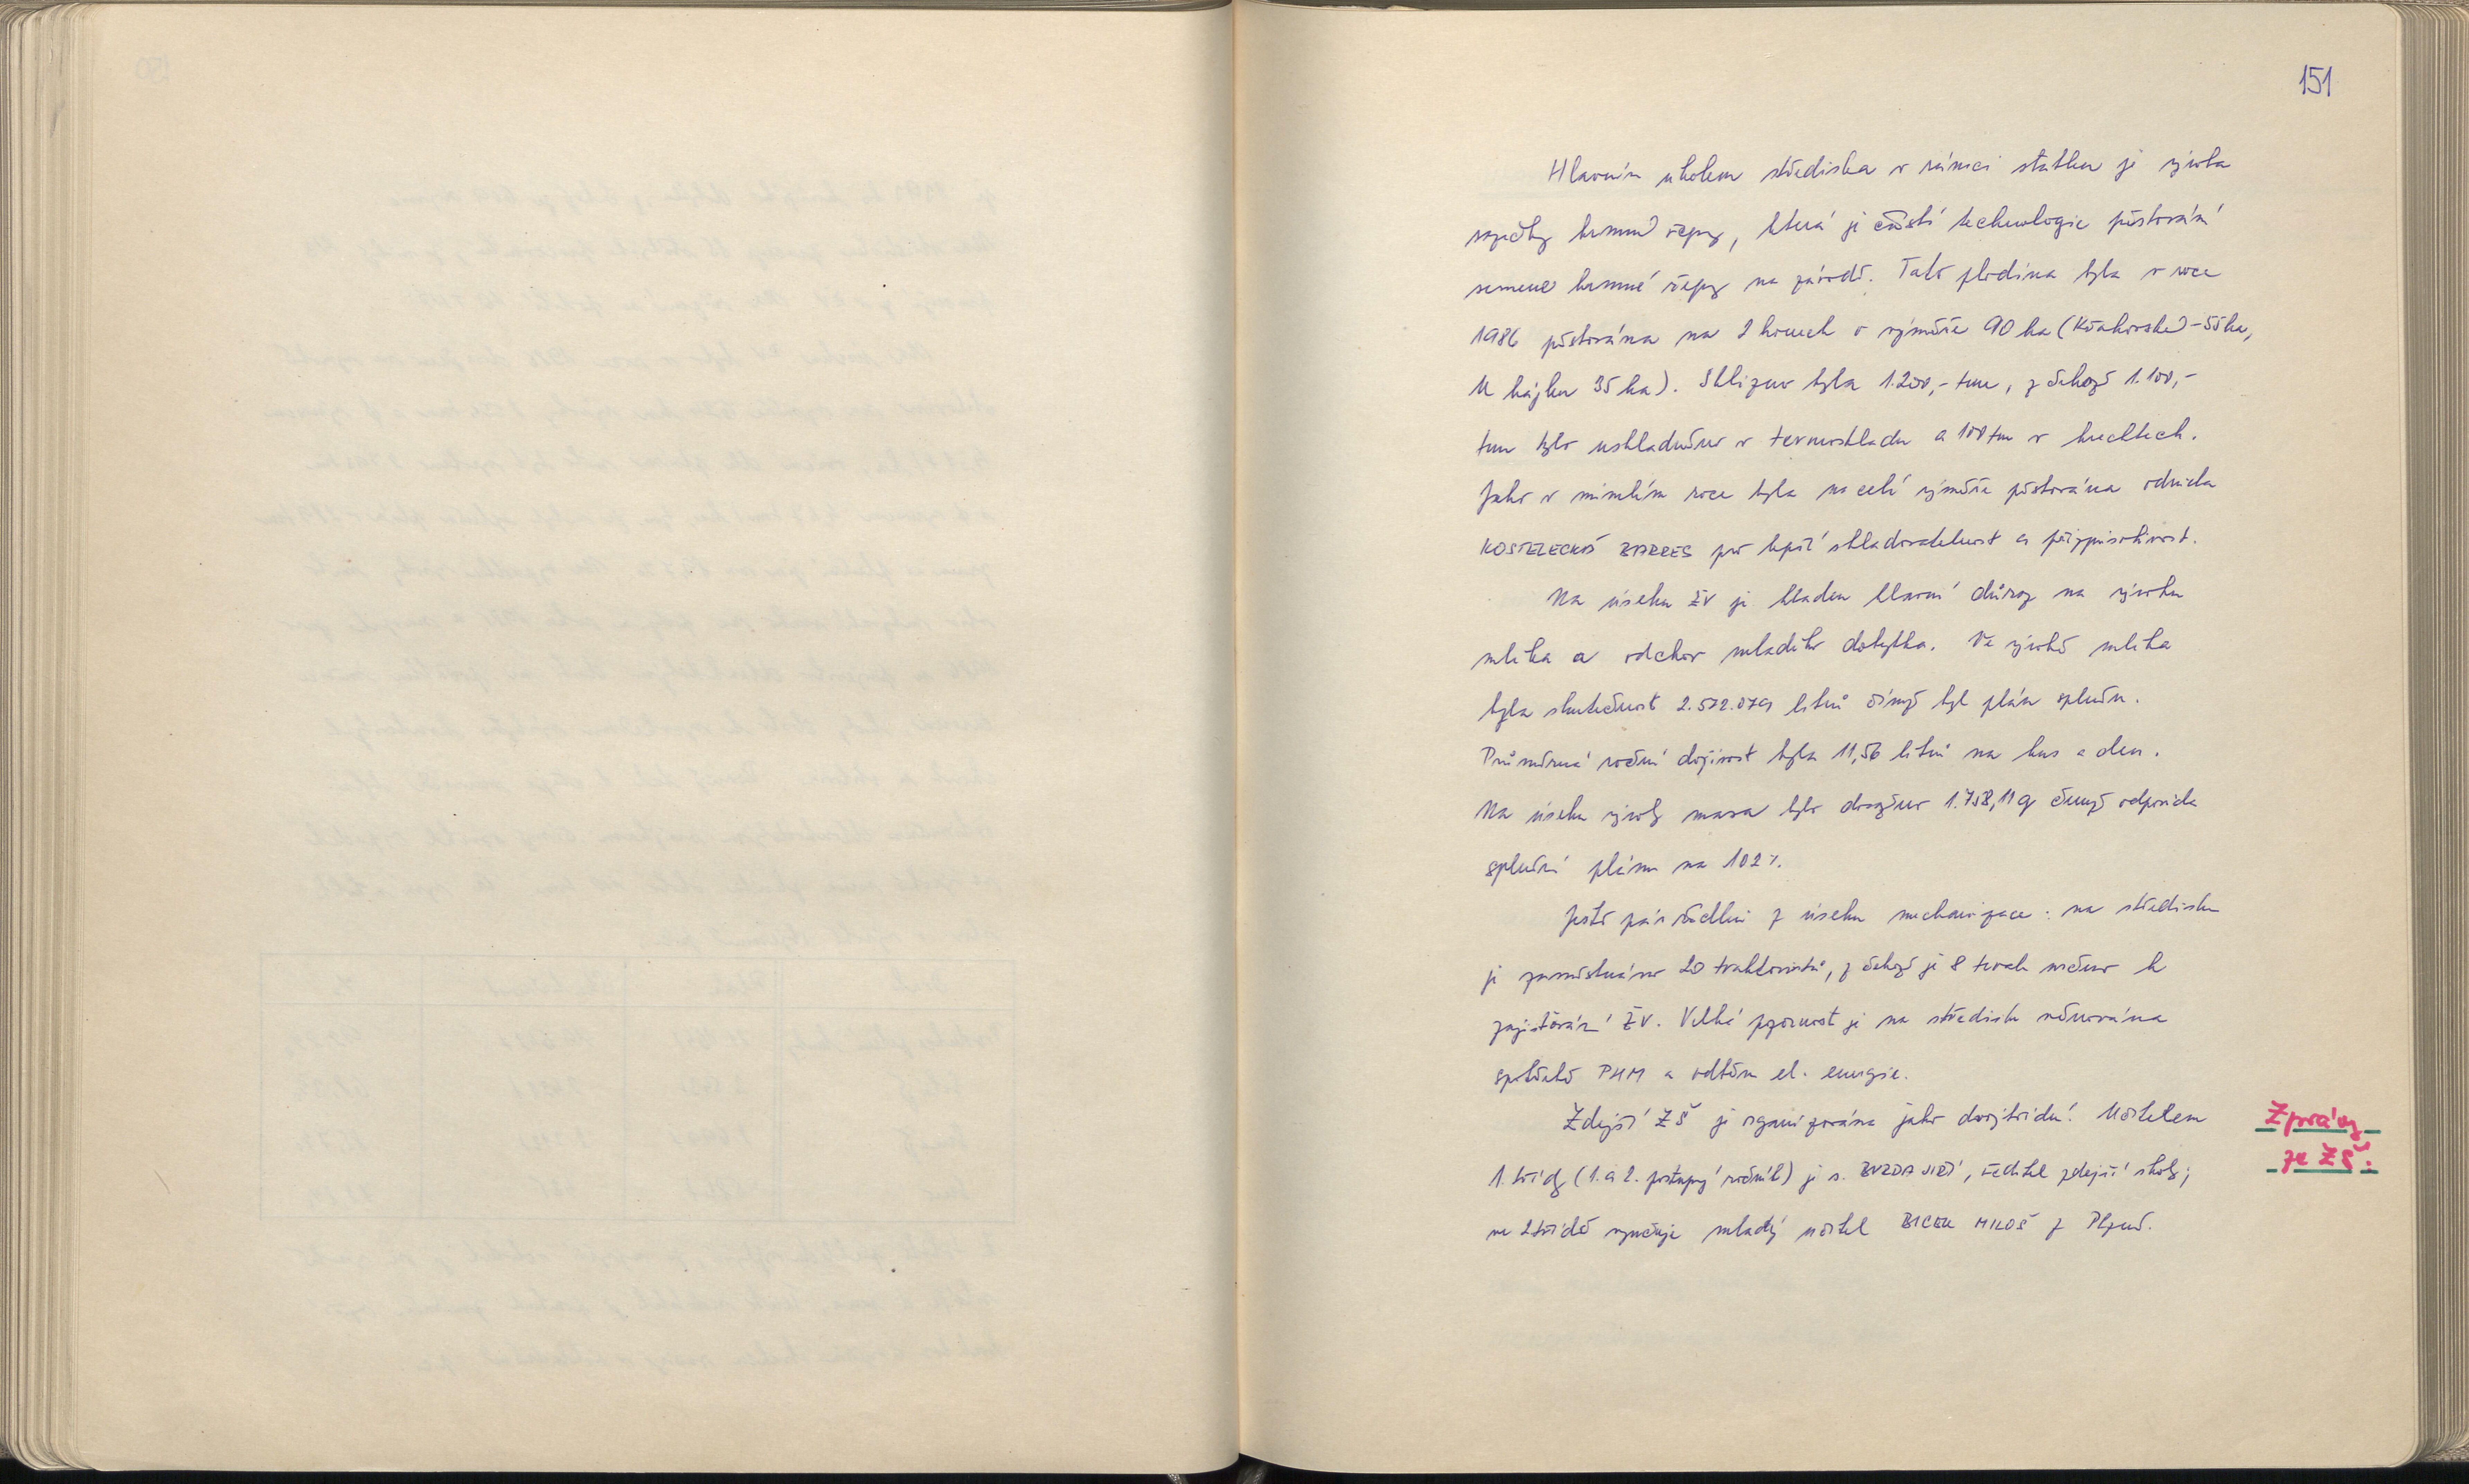 151
Hlavním úkolem střediska v rámci statku je výroba
sazečky krmné řepy, která je částí technologie pěstování
semene krmné řepy na závodě. Tato plodina byla v roce
1986 pěstována na 2 honech o výměře 90 ha (Křakovské - 55 ha,
U hájku 35 ha). Sklizeno bylo 1.200,- tun, z čehož 1.100,-
tun bylo uskladněno v termoskladu a 100 tun v krechtech.
Jako v minulém roce byla na celé výměře pěstována odrůda
KOSTELECKÁ BARRES pro lepší skladovatelnost a přizpůsobivost.
Na úseku ŽV je kladen hlavní důraz na výrobu
mléka a odchov mladého dobytka. Ve výrobě mléka
byla skutečnost 2.572.079 litrů čímž byl plán splněn.
Průměrná roční dojivost byla 11,56 litrů na kus a den.
Na úseku výroby masa bylo docíleno 1.758,11 q čemuž odpovídá
splnění plánu na 102 %.
Ještě pár řádků z úseku mechanizace: na středisku
je zaměstnáno 20 traktoristů, z čehož je 8 trvale určeno k
zajišťování ŽV. Velká pozornost je na středisku věnována
spotřebě PHM a odběru el. energie.
Zdejší ZŠ je organizována jako dvojtřídní. Učitelem
1. třídy (1. a 2. postupný ročník) je s. BUZDA JIŘÍ, ředitel zdejší školy;
ve 2 třídě vyučuje mladý učitel BICEK MILOŠ z Plzně.
Zprávy
ze ZŠ: